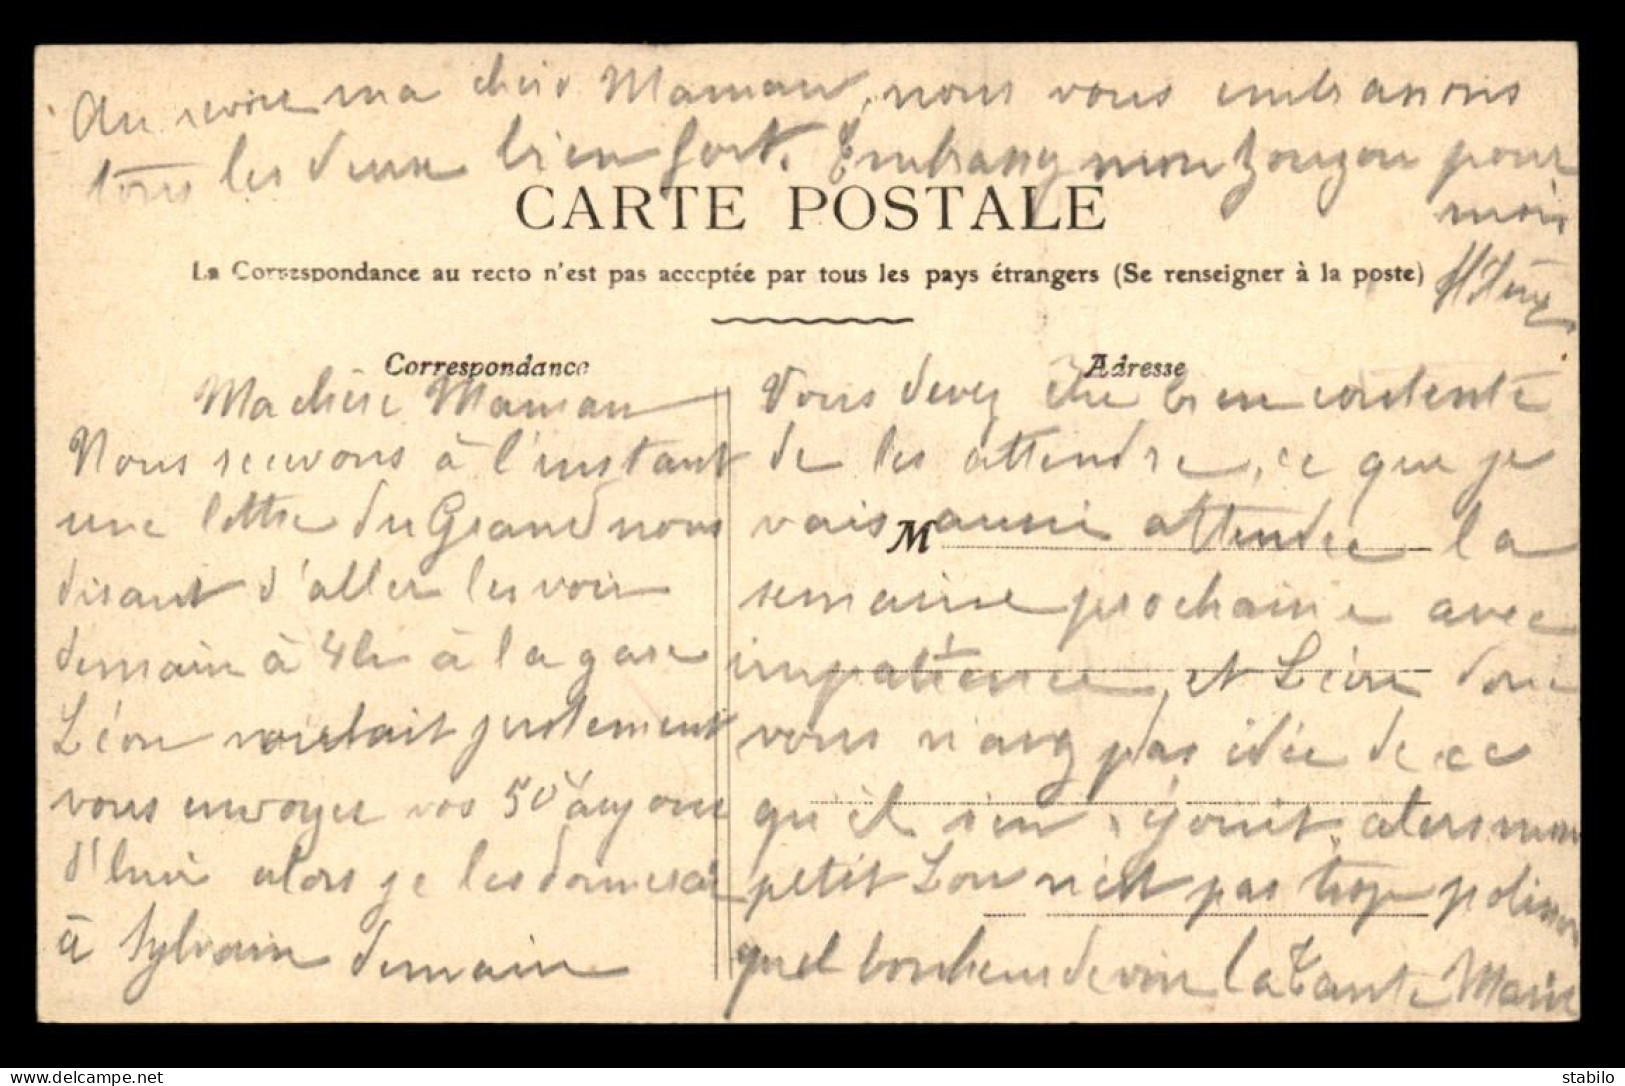 Au revoir ma chère Maman, nous vous embrassons
tous les deux bien fort. Embrassez mon Zouzou pour
moi
CARTE POSTALE
La Correspondance au recto n'est pas acceptée par tous les pays étrangers (Se renseigner à la poste)
Correspondance
Ma chère Maman
Nous recevons à l'instant
une lettre du Grand nous
disant d'aller les voir
demain à 4h à la gare
Léon voulait justement
vous envoyer vos 50f aujour
d'hui alors je les donnerai
à Sylvain demain
Adresse
Vous devez être bien contente
de les attendre, ce que je
vais aussi attendre la
M
semaine prochaine avec
impatience, et Léon donc
vous n'avez pas idée de ce
qu'il s'en réjouit, alors mon
petit Lou n'est pas trop polisson
quel bonheur de voir la Tante Marie
delcampe.net
stabilo